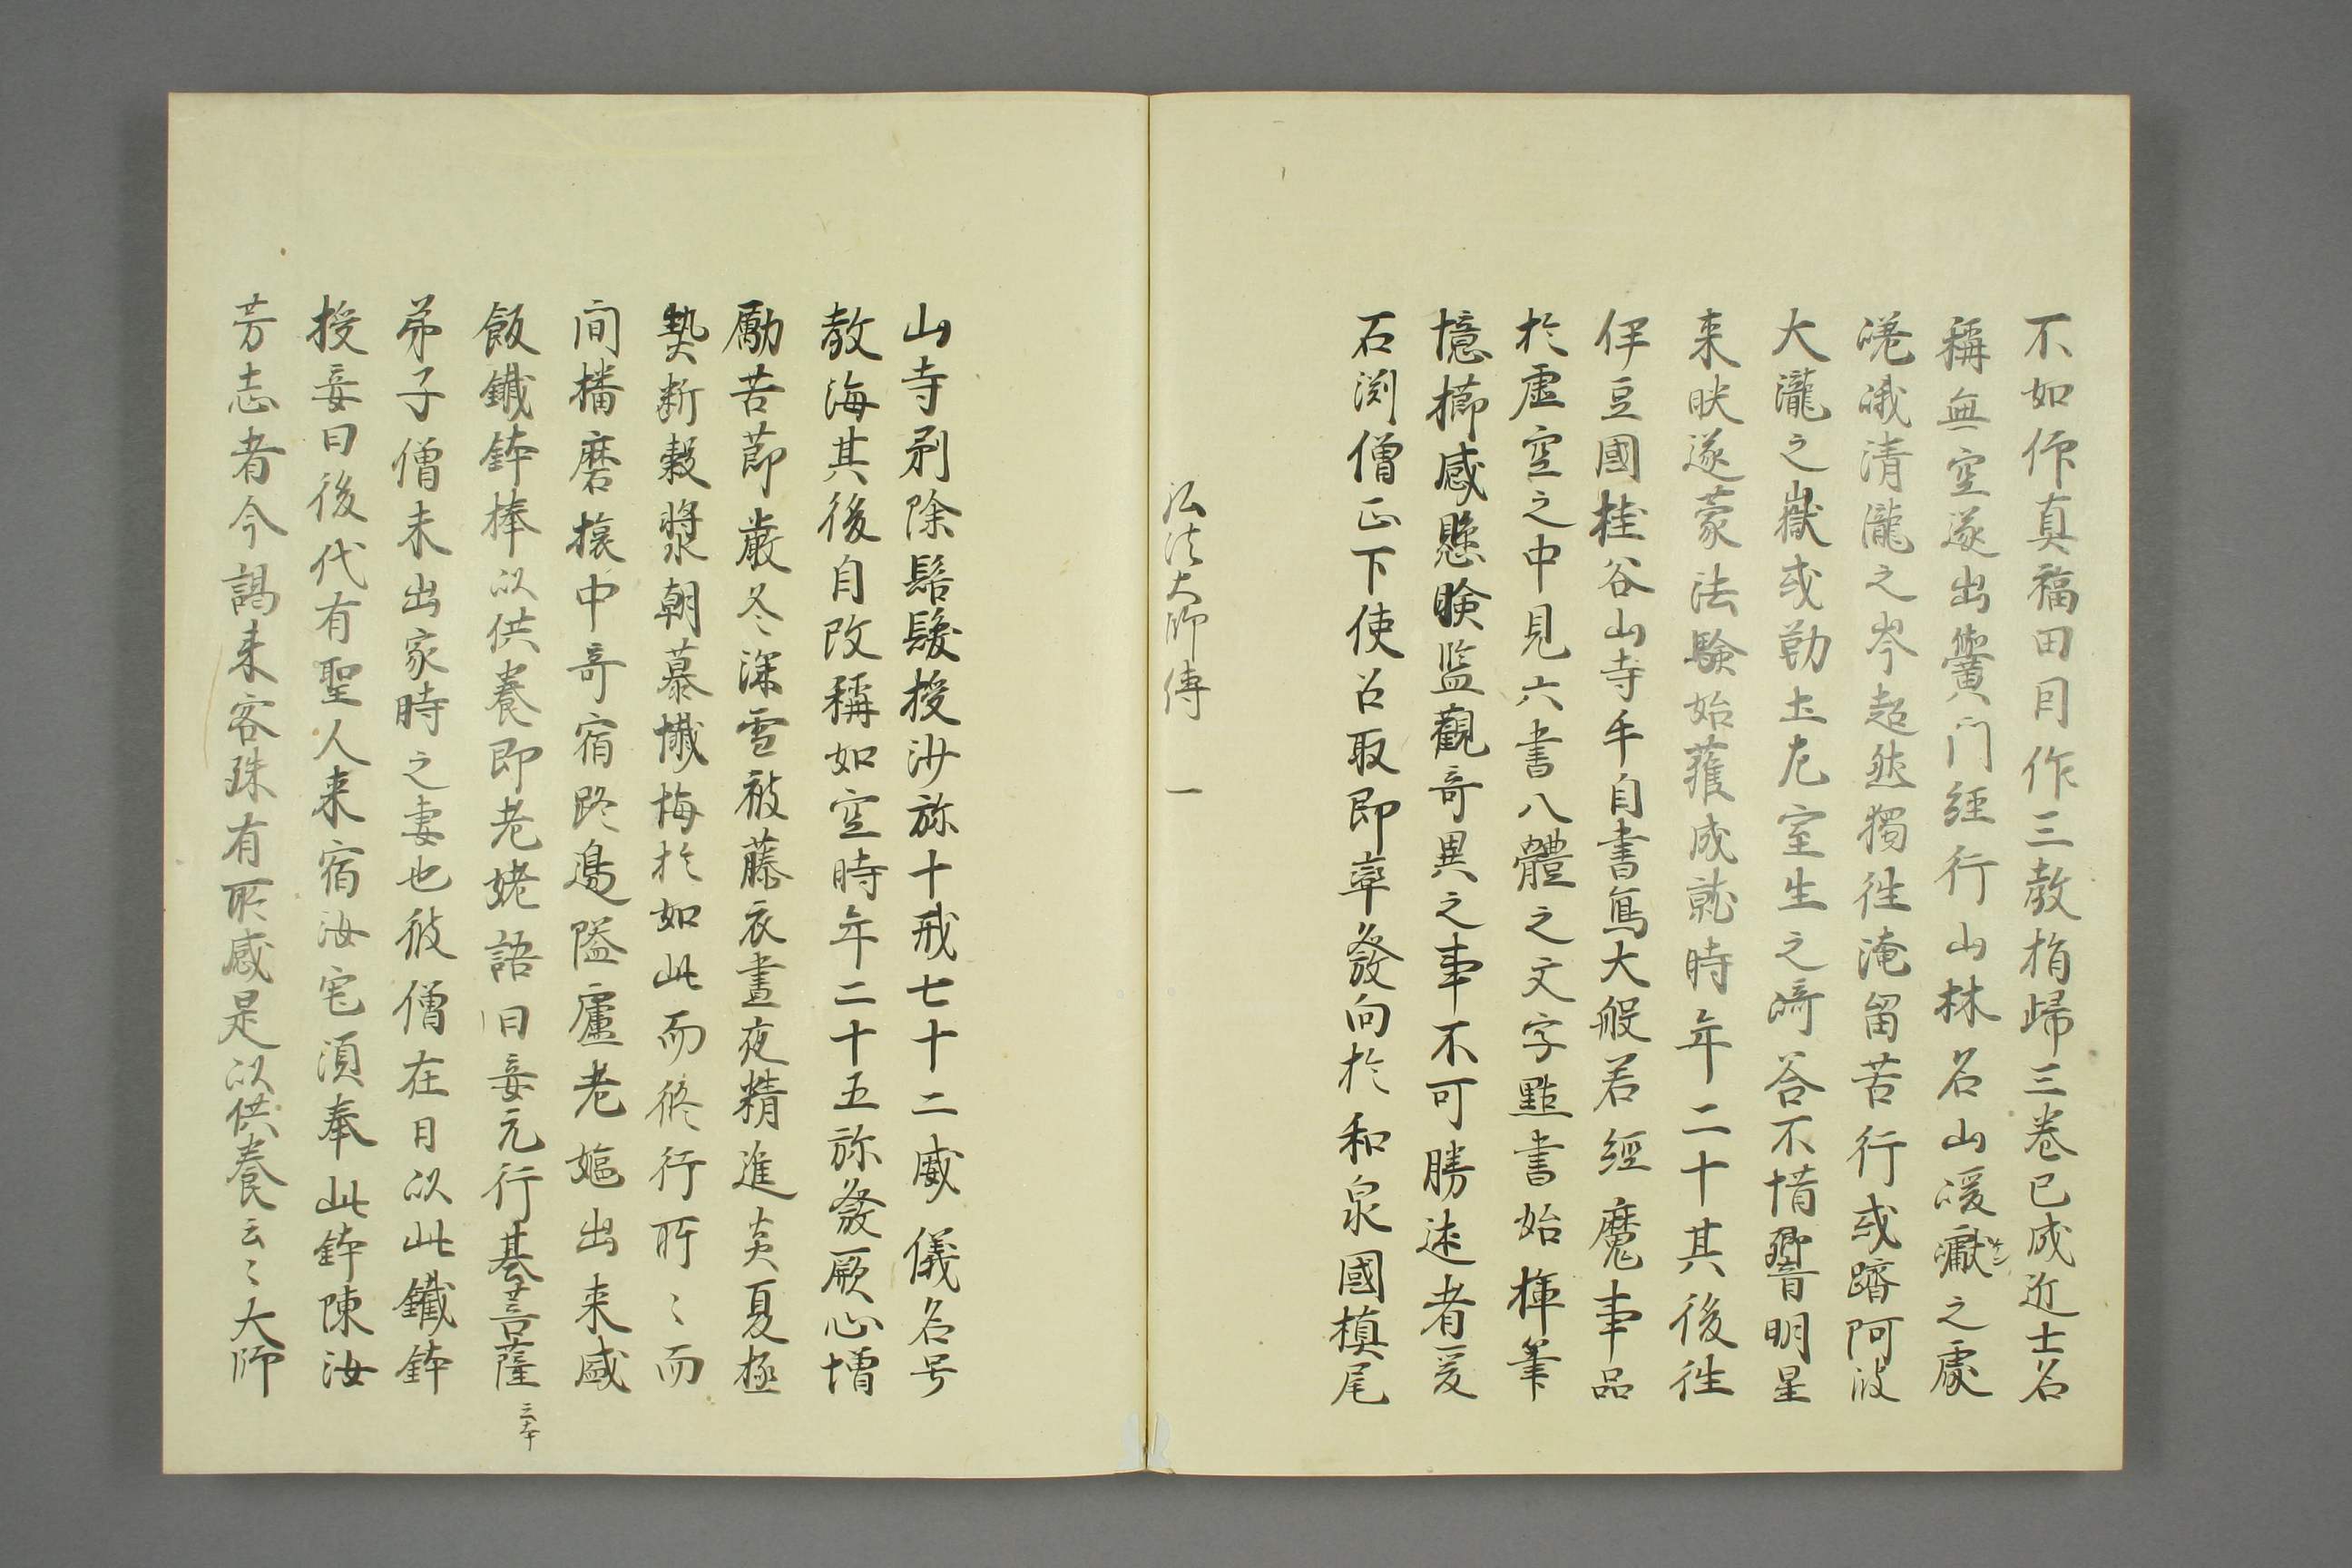 不如仰真福田目作三教指歸三卷已成近士名
稱無空遂出黌門經行山林名山㵎巘之處
嵯峨清瀧之岑超然獨往淹留苦行或躋阿波
大瀧之嶽或勤土左室生之﨑谷不惜響明星
来映遂蒙法驗始獲成就時年二十其後往
伊豆國桂谷山寺手自書寫大般若經魔事品
於虛空之中見六書八體之文字點書始揮筆
憶擲感懸瞼監觀奇異之事不可勝述者爰
石渕僧正下使召取即率發向於和泉國槙尾
弘法大師傳 一
山寺剃除髻髮授沙弥十戒七十二威儀名号
教海其後自改稱如空時年二十五弥發厥心增
勵苦節嚴冬深雪被藤衣晝夜精進炎夏極
熱断穀漿朝暮懺悔於如此而修行所〻而
间播磨揆中奇宿路邊隘廬老嫗出来盛
飯鐵鉢捧以供養即老姥語曰妾元行基菩薩
弟子僧未出家時之妻也彼僧在日以此鐵鉢
授妾曰後代有聖人来宿汝宅須奉此鉢陳汝
芳志者今謁来客殊有所感是以供養云〻大師